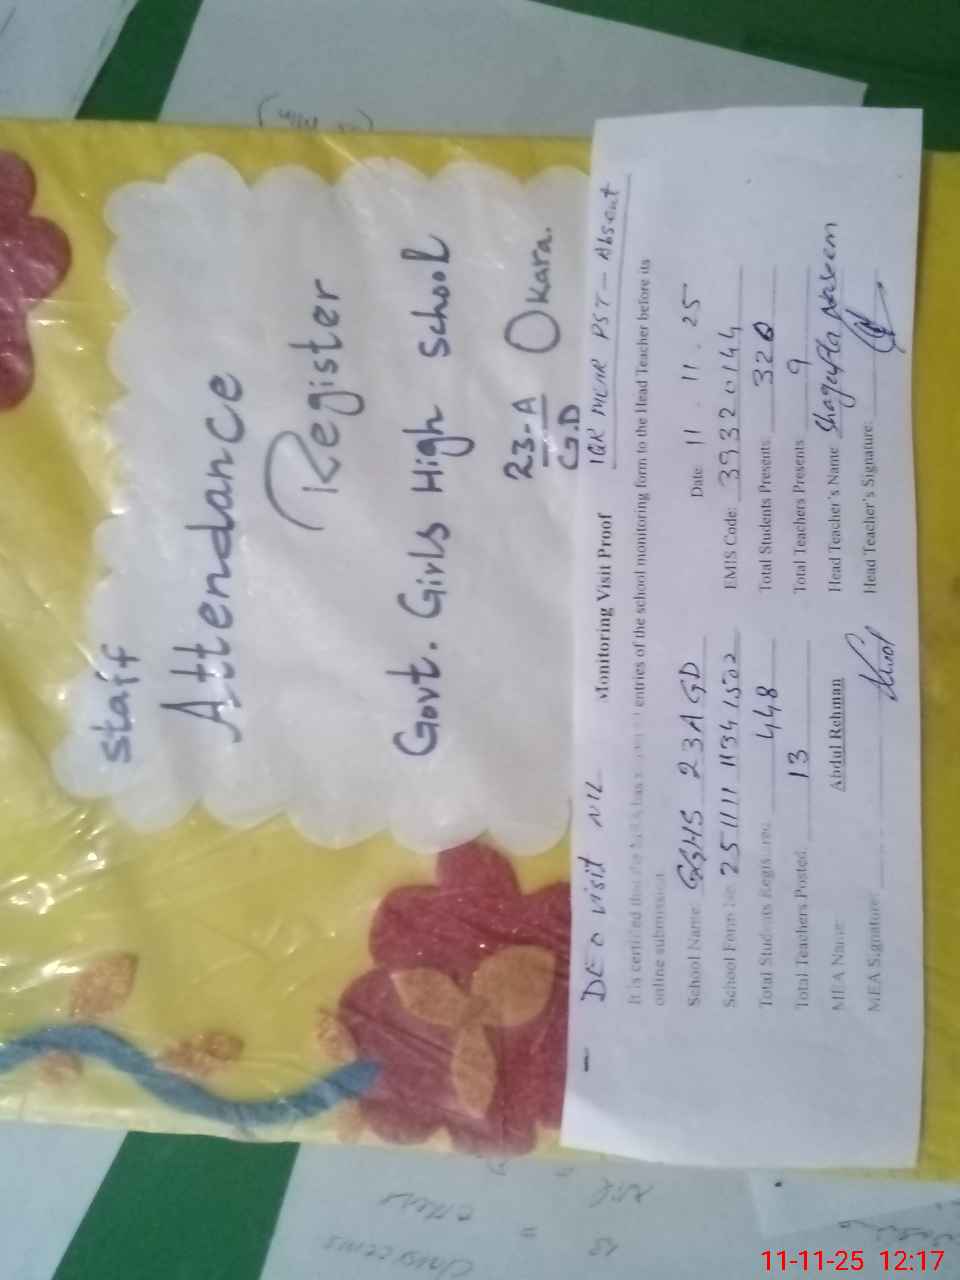 Staff
Attendance
Register
Govt. Girls High School
23-A Okara.
G.D
DEO visit NIL
PST - Absent
Monitoring Visit Proof
It is certified that the entries of the school monitoring form to the Head Teacher before its
online submission.
School Name: GGHS 23 A GD Date: 11 . 11 . 25
School Form No: EMIS Code: 39320144
Total Students Registered: 448 Total Students Presents: 320
Total Teachers Posted: 13 Total Teachers Presents 9
MEA Name: Abdul Rehman Head Teacher's Name Shagufta Naseem
MEA Signature: Head Teacher's Signature:
11-11-25 12:17